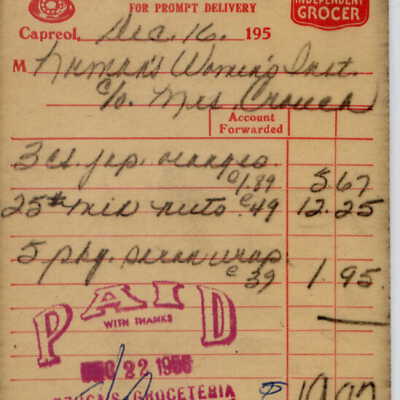 FOR PROMPT DELIVERY
INDEPENDENT
GROCER
Capreol, Dec. 16. 195
M Women's Inst.
c/o Mrs
Account
Forwarded
3 cs. jap. oranges
@1.89 5.67
25# mix nuts @.49 12.25
5 pkg. saran wrap
@ 39 1.95
PAID
WITH THANKS
DEC 22 1955
GROCETERIA